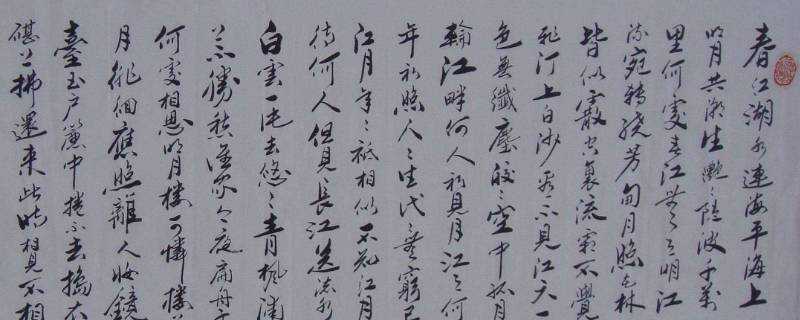 春江潮水連海平海上
明月共潮生灩〻隨波千萬
里何處春江無月明江
流宛轉繞芳甸月照花林
皆似霰空裏流霜不覺
飛汀上白沙看不見江天一
色無纖塵皎〻空中孤月
輪江畔何人初見月江月何
年初照人〻生代〻無窮已
江月年〻祗相似不知江月
待何人但見長江送流水
白雲一片去悠〻青楓浦
上不勝愁誰家今夜扁舟子
何處相思明月樓可憐樓上
月徘徊應照離人妝鏡
臺玉戶簾中捲不去擣衣
砧上拂還來此時相望不相